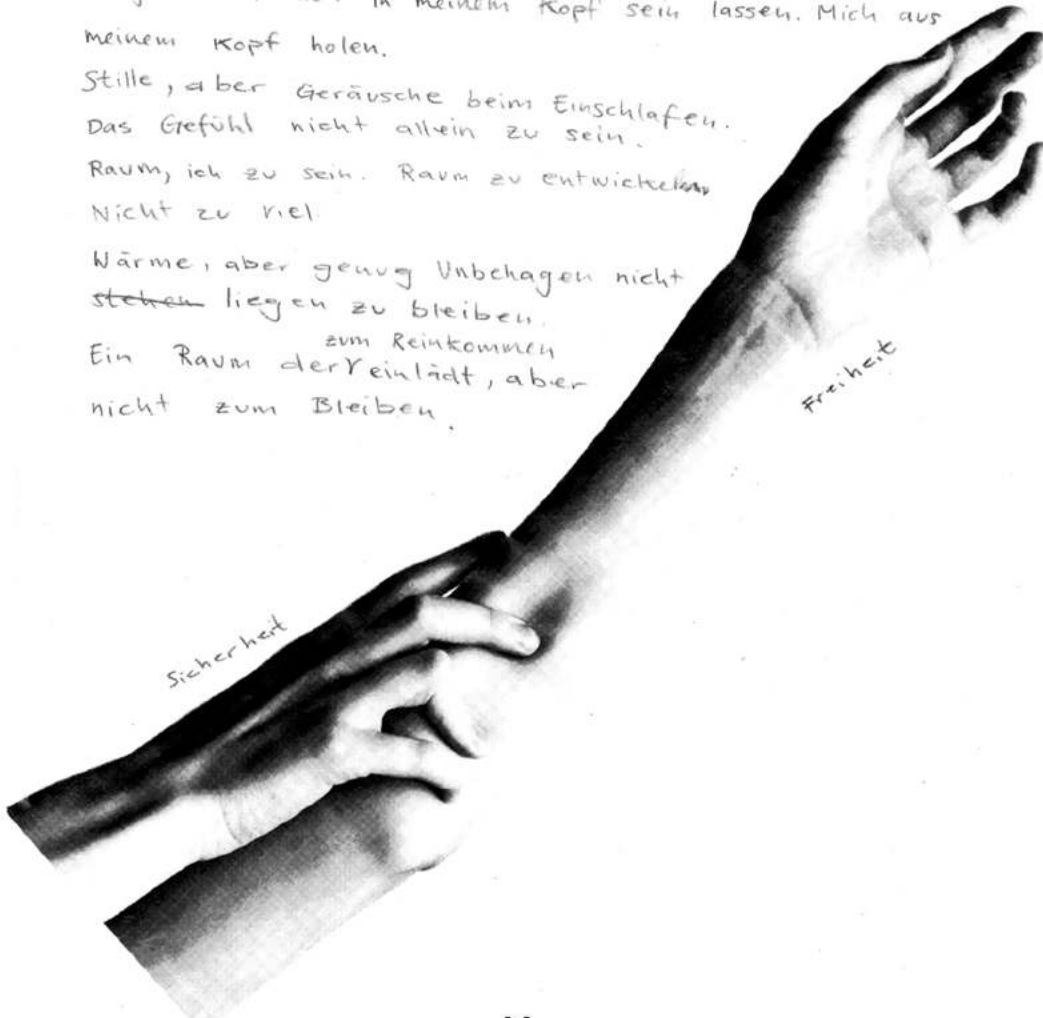 in meinem Kopf sein lassen. Mich aus
meinem Kopf holen.
Stille, aber Geräusche beim Einschlafen.
Das Gefühl nicht allein zu sein.
Raum, ich zu sein. Raum zu entwickeln
Nicht zu viel.
Wärme, aber genug Unbehagen nicht
stehen liegen zu bleiben.
zum Reinkommen
Ein Raum der einlädt, aber
nicht zum Bleiben.
Freiheit
Sicherheit